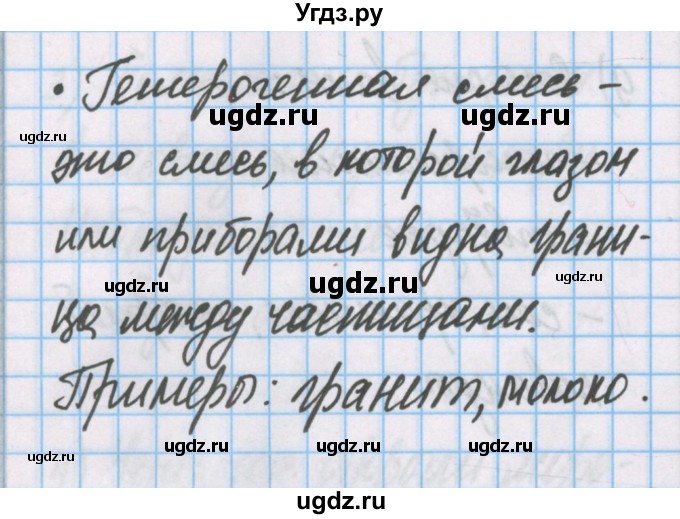 Угдз.ру
• Гетерогенная смесь –
это смесь, в которой глазом
или приборами видна грани-
ца между частицами.
Примеры: гранит, молоко.
ugdz.ru ugdz.ru
ugdz.ru
ugdz.ru ugdz.ru ugdz.ru
ugdz.ru ugdz.ru
ugdz.ru ugdz.ru
ugdz.ru
ugdz.ru ugdz.ru ugdz.ru
ugdz.ru